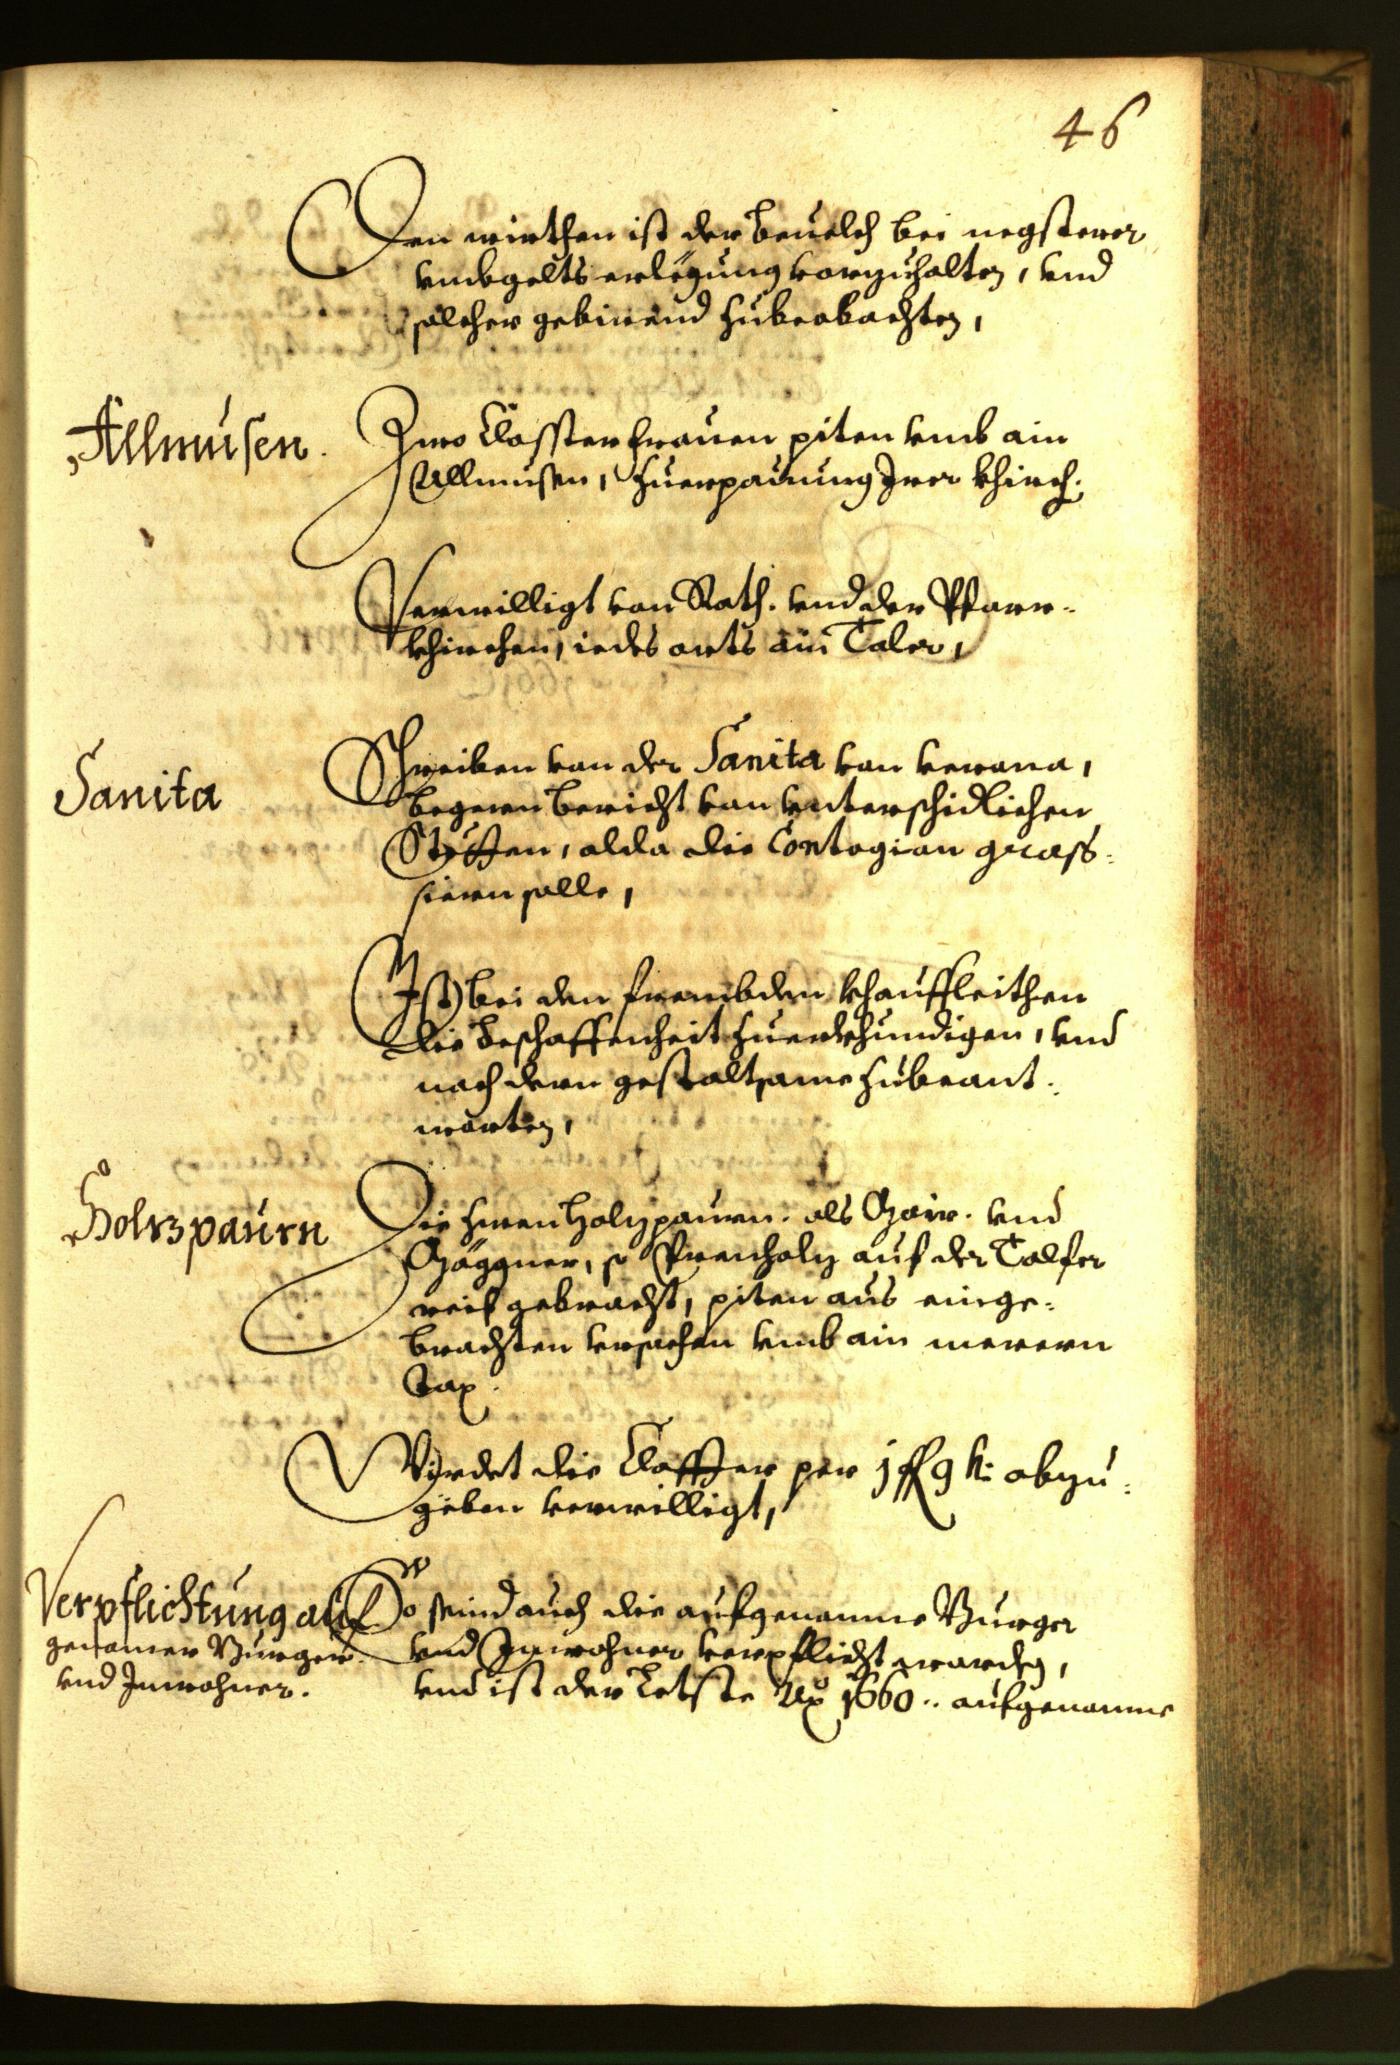 46
Den wirthen ist der beuelch bei negsterer
vmbgelts erlegung vorzuhalten, vnd
solcher gebirend zubeobachten,
Allmusen.
Zwo Closster frauen piten vmb ain
Allmusen, zuerpauung Irer khirch.
Verwilligt von Rath. vnd der Pfarr-
khirchen, iedes orts ain Taler,
Sanita
Schreiben von der Sanita von verona,
begeren bericht von vnterschidlichen
Stetten, alda die Contagion grass:
siern solle,
Ist bei den frembden khauffleithen
die beschaffenheit zuerkhundigen, vnd
nach dern gestaltsame zubeant:
worten,
Holzpaurn
Die Herren holzpaurn. als Mair. vnd
so Prenholz auf der Talfer
reif gebracht, piten aus einge:
brachten vrsachen vmb ain merern
Tax.
Wirdet die Claffter per 1 f 9 k: abzu:
geben verwilligt,
Verpflichtung auf
genomer Burger
vnd Inwohner.
So seind auch die aufgenomne Burger
vnd Inwohner verpflicht worden,
vnd ist der Letste Ao 1660.. aufgenomne